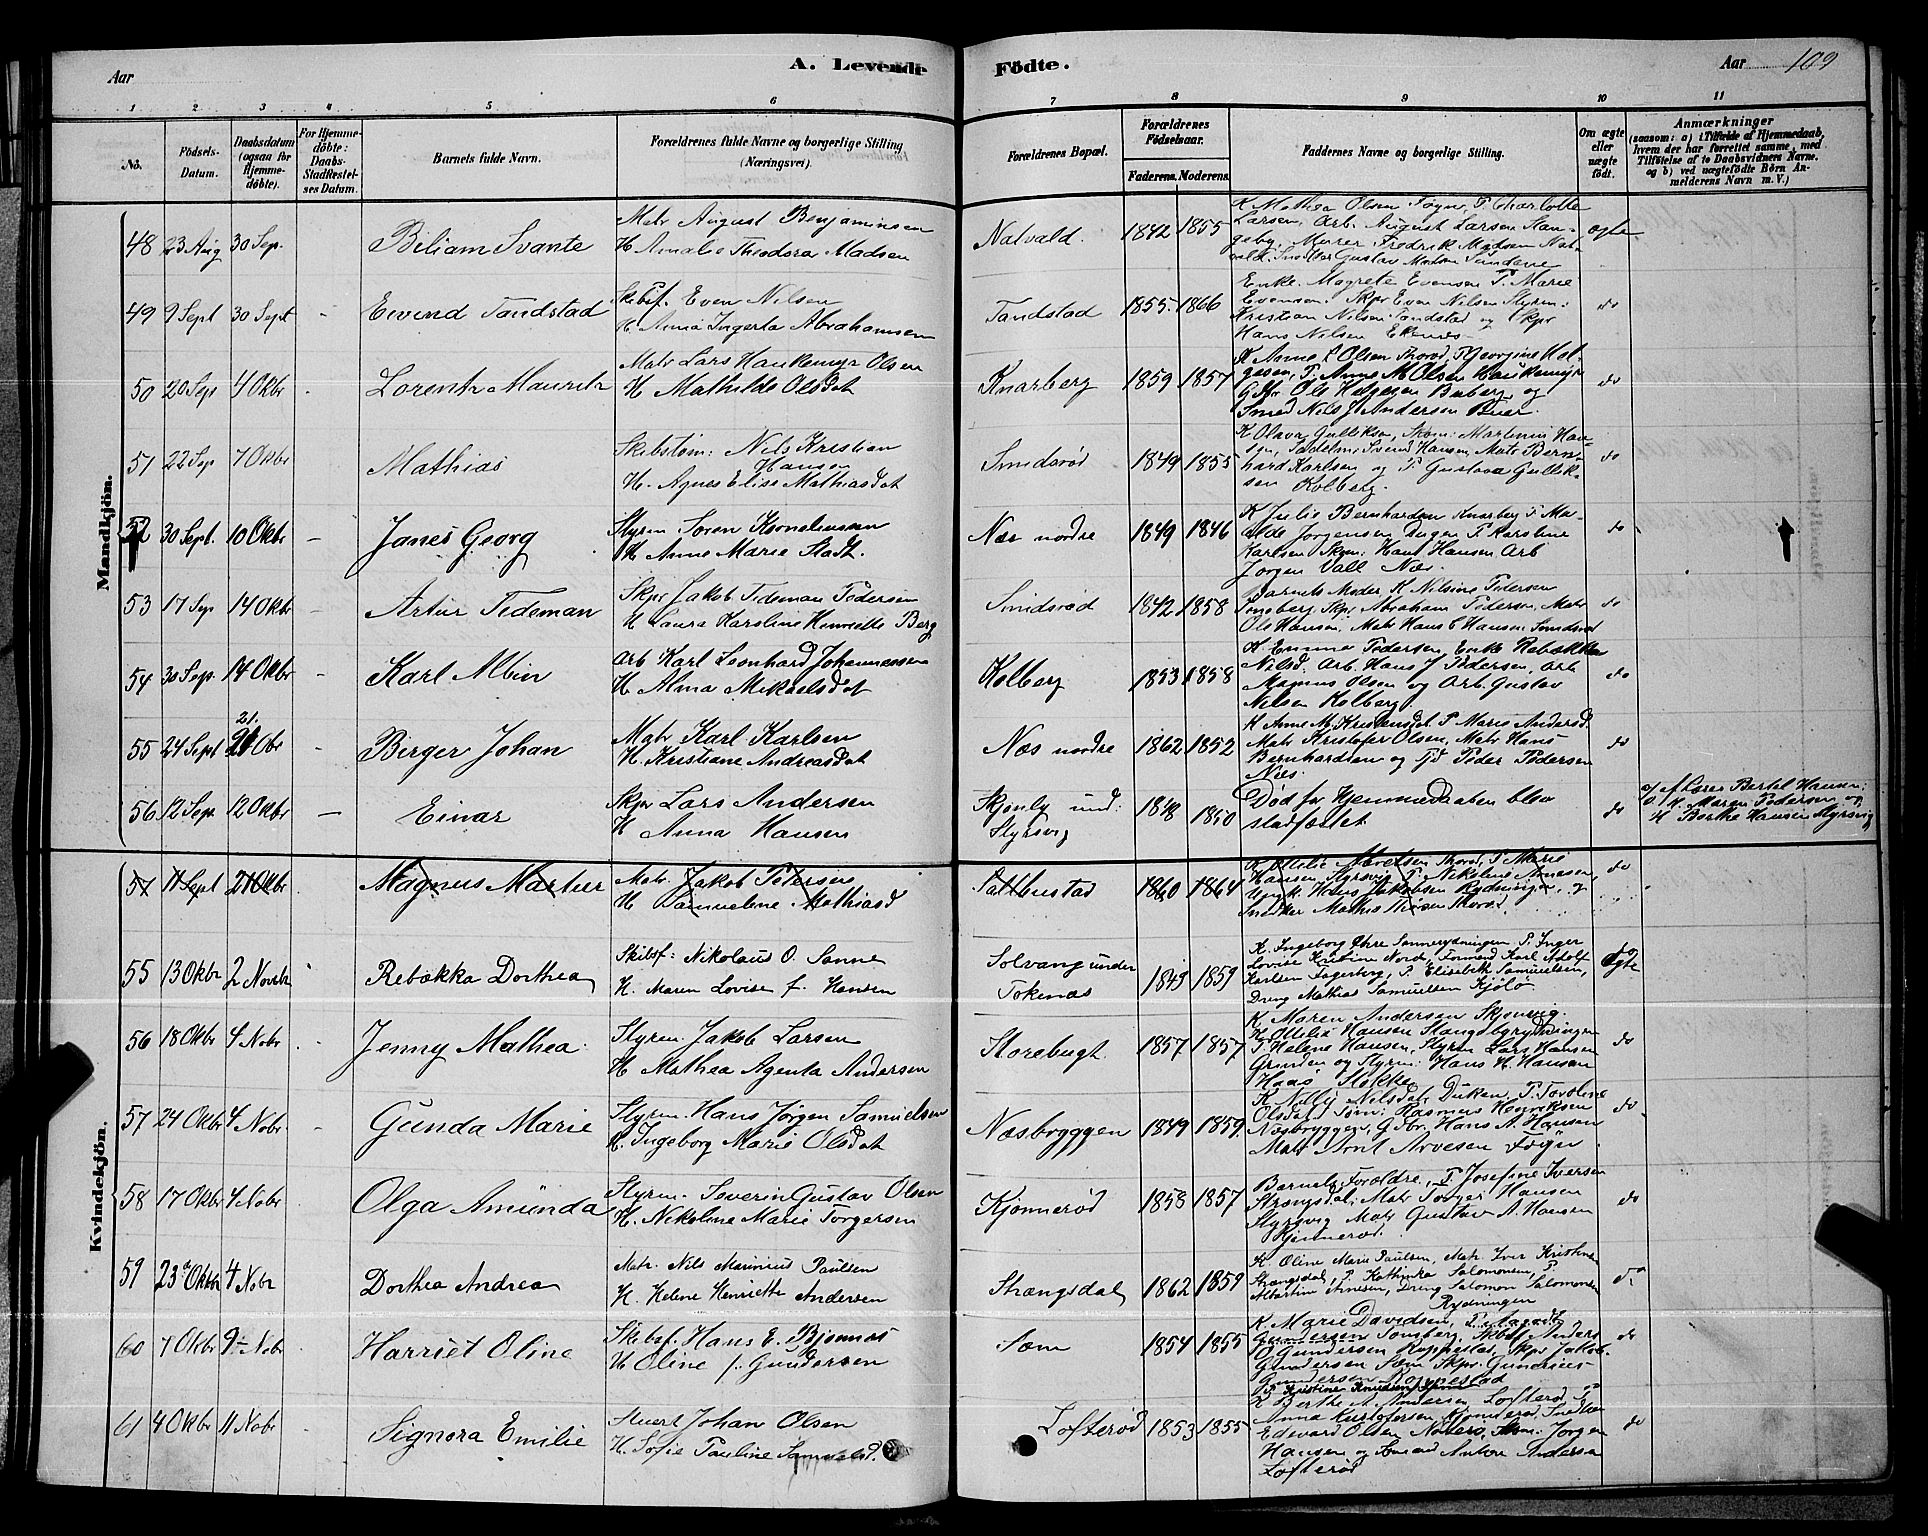 Aar
A. Levende Födte.
Aar 109
1 2 3 4 5 6 7 8 9 10 11
No.
Födsels-Datum.
Daabsdatum (ogsaa for Hjemmedöbte).
For Hjemmedöbte: Daabs-Stadfæstelses Datum.
Barnets fulde Navn.
Forældrenes fulde Navne og borgerlige Stilling (Næringsvei).
Forældrenes Bopæl.
Forældrenes Födselsaar.
Faderens. Moderens.
Faddernes Navne og borgerlige Stilling.
Om ægte eller uægte födt.
Anmærkninger
(saasom: a) i Tilfælde af Hjemmedaab, hvem der har forrettet samme, med Tilföielse af to Daabsvidners Navne. og b) ved uægtefödte Börn Anmelderens Navn m. V.)
Mandkjön.
48 23 Aug 30 Sep. Biliam Svante
Matr August Benjaminsen
H Amalie Theodora Madsen
Natvald. 1842 1855
K Mathea Olsen Føgn, P. Charlotte
Larsen, Arb. August Larsen
Murer Fredrik Madsen
Gustav Madsen Sundene
ægte
49 9 Sept 30 Sept - Eivind Tandstad
Skibsf. Even Nilsen
H. Anna Ingerta Abrahamsen
Tandstad 1855. 1866
Enke. Magrete Evensen P. Marie
Evensen. Skpr Even Nilsen Styrm:
Kristian Nilsen Tandstad og Skpr
Hans Nilsen Ekenes
do
50 20 Sep 4 Okbr - Lorents Mauritz
Matr Lars Haukemyr Olsen
H Mathilde Olsdat
Knarberg 1859 1857
K Anne L Olsen Thorød, P Georgine Hol-
gesen, P. Anne M Olsen Haukemyr
Gbr Ole Holgesen Buberg og
Smed Nils J Andersen Buer.
do
51 22 Sep 7 Okbr Mathias
Skibstøm: Nils Kristian
Hansen
H. Agnes Elise Mathiasdat
Smidsrød 1849 1855
K Olava Gulliksen, Skom: Martinius Han-
sen, Sadelm. Svend Hansen, Matr Bern-
hard Karlsen og P Gustava Gullik-
sen Kolberg.
do
52 30 Sept. 10 Okbr - Janes Georg
Styrm Soren Korneliussen
H Anne Marie Stadt.
Nær nordre 1849 1846
K Julie Bernhardsen Knarberg P Ma-
tilde Jorgensen Dugen P. Karoline
Karlsen Skom: Hans Hansen Arb
Jorgen Vall Nær.
do
53 17 Sep 14 Okbr - Artur Tedeman
Skpr Jakob Tideman Pedersen
H Laura Karoline Henriette Berg
Smidsrød 1842 1858
Barnets Moder, K Nilsine Pedersen
Tønsberg Skpr Abraham Pedersen, Matr
Ole Hansen, Matr Hans C Hansen Smidsrød
do
54 30 Sep. 14 Okbr - Karl Albin
Arb Karl Leonhard Johannessen
H. Alma Mikaelsdat
Kolberg 1853 1858
K. Emma Pedersen, Enke Rebække
Nilsd. Arb. Hans J Pedersen, Arb
Magnus Olsen og Arb. Gustav
Nilsen Kolberg.
do
55 24 Sept 21. Obr - Birger Johan
Matr Karl Karlsen
H. Kristiane Andreasdat
Næs nordre 1862 1852
K Anne M. Kristensdat. P Maris Andersd.
Matr Kristofer Olsen, Matr Hans
Bernhardsen og Tjd Peder Pedersen
Næs.
do
56 12 Sep. 12 Okbr — Einar
Skpr Lars Andersen
H Anna Hansen
Skjonly und. Styrsvig 1848 1850
Død før Hjemmedaaben blev
stadfæstet
do
a/ af Lærer Bertel Hansen:
K. Maren Pedersen og
H Berthe Hansen Styrsvig
57 11 Sept 21 Okbr Magnus Martur
Matr. Jakob Petersen
H Samuelene Mathiasd
Salthustad 1860 1864
K Ottilie Thorød, P. Marie
Hansen Styrsvig P. Nikoline Arnesen,
Ungk. Hans Jakobsen Rydningen, og
Snedker Mathis Thorød.
do
Kvindekjön.
55 13 Okbr 2 Novbr Rebækka Dorthea
Skibsf: Nikolaus O. Sanne
H. Maren Lovise f. Hansen
Solvang under Tokenæs 1843 1859
K. Ingeborg Sannerydningen P. Inger
Lovise Kristine Nord, Formand Karl Adolf
Karlsen Fagerberg, P. Elisabeth Samuelsen,
Dreng Mathias Samuelsen Kjölö
Ægte
56 18 Okbr 4 Nobr - Jenny Mathea
Styrm. Jakob Larsen
H Mathea Agenta Andersen
Storebugt 1857 1857
K. Maren Andersen Skjonvig.
K Ottilia Hansen Stangebyrydningen
P Helene Hansen, Styrm Lars Hansen
Grinden og Styrm: Hans H. Hansen
Haas Stokke
do
57 24 Okbr 4 Nobr - Gunda Marie
Styrm. Hans Jørgen Samuelsen
H. Ingeborg Marie Olsdat
Næsbryggen 1849 1859.
K Nally Nilsdat, Duken, P. Toroline
Olsdat Tøm: Rasmus Henriksen
Næsbryggen, Gdbr. Hans A. Hansen
Matr Arnt Arvesen Føgn.
do
58 17 Okbr 4 Nobr - Olga Amunda
Styrm. Severin Gustav Olsen
H. Nikoline Marie Torgersen
Kjønnerød 1858 1857
Barnets Foreldre, P. Josefine Iversen
Strengsdal; Matr Torger Hansen
Styrsvig Matr Gustav A. Hansen
Kjønnerød.
do
59 23 Okbr 4 Nobr Dorthea Andrea
Matr. Nils Marinius Paulsen
H. Helene Henriette Andersen
Strængsdal 1862 1859
K. Oline Marie Paulsen, Matr. Iver Kristensen
Strængsdal, P. Kathinka Salomonsen, P.
Albertine Arnesen, Dreng Salomon Salomonsen
Rydningen
do
60 7 Okbr 9 Nobr Harriet Oline
Skibsf. Hans E. Bjønnes
H Oline f. Gundersen
Sæm 1854 1855
K. Marie Davidsen, P. Aagot
Gundersen Tønsberg, Skbsf Anders
O Gundersen Roppestad, Skpr Jakob
Gundersen Sæm Skpr. Gunerius
Gundersen Roppestad
do
61 4 Okbr 11 Nobr Signora Emilie
Muerer Johan Olsen
H. Sofie Pauline Samuelsd.
Lofterød 1853 1855
P Kristine Knudsen
K Berthe A Andersen Lofterød P
Anna Kristofersen, Kjønnerød, Snedker
Edevard Olsen Nøtterø, Skom. Jorgen
Hansen og Smed Anton Andersen
Lofterød
do